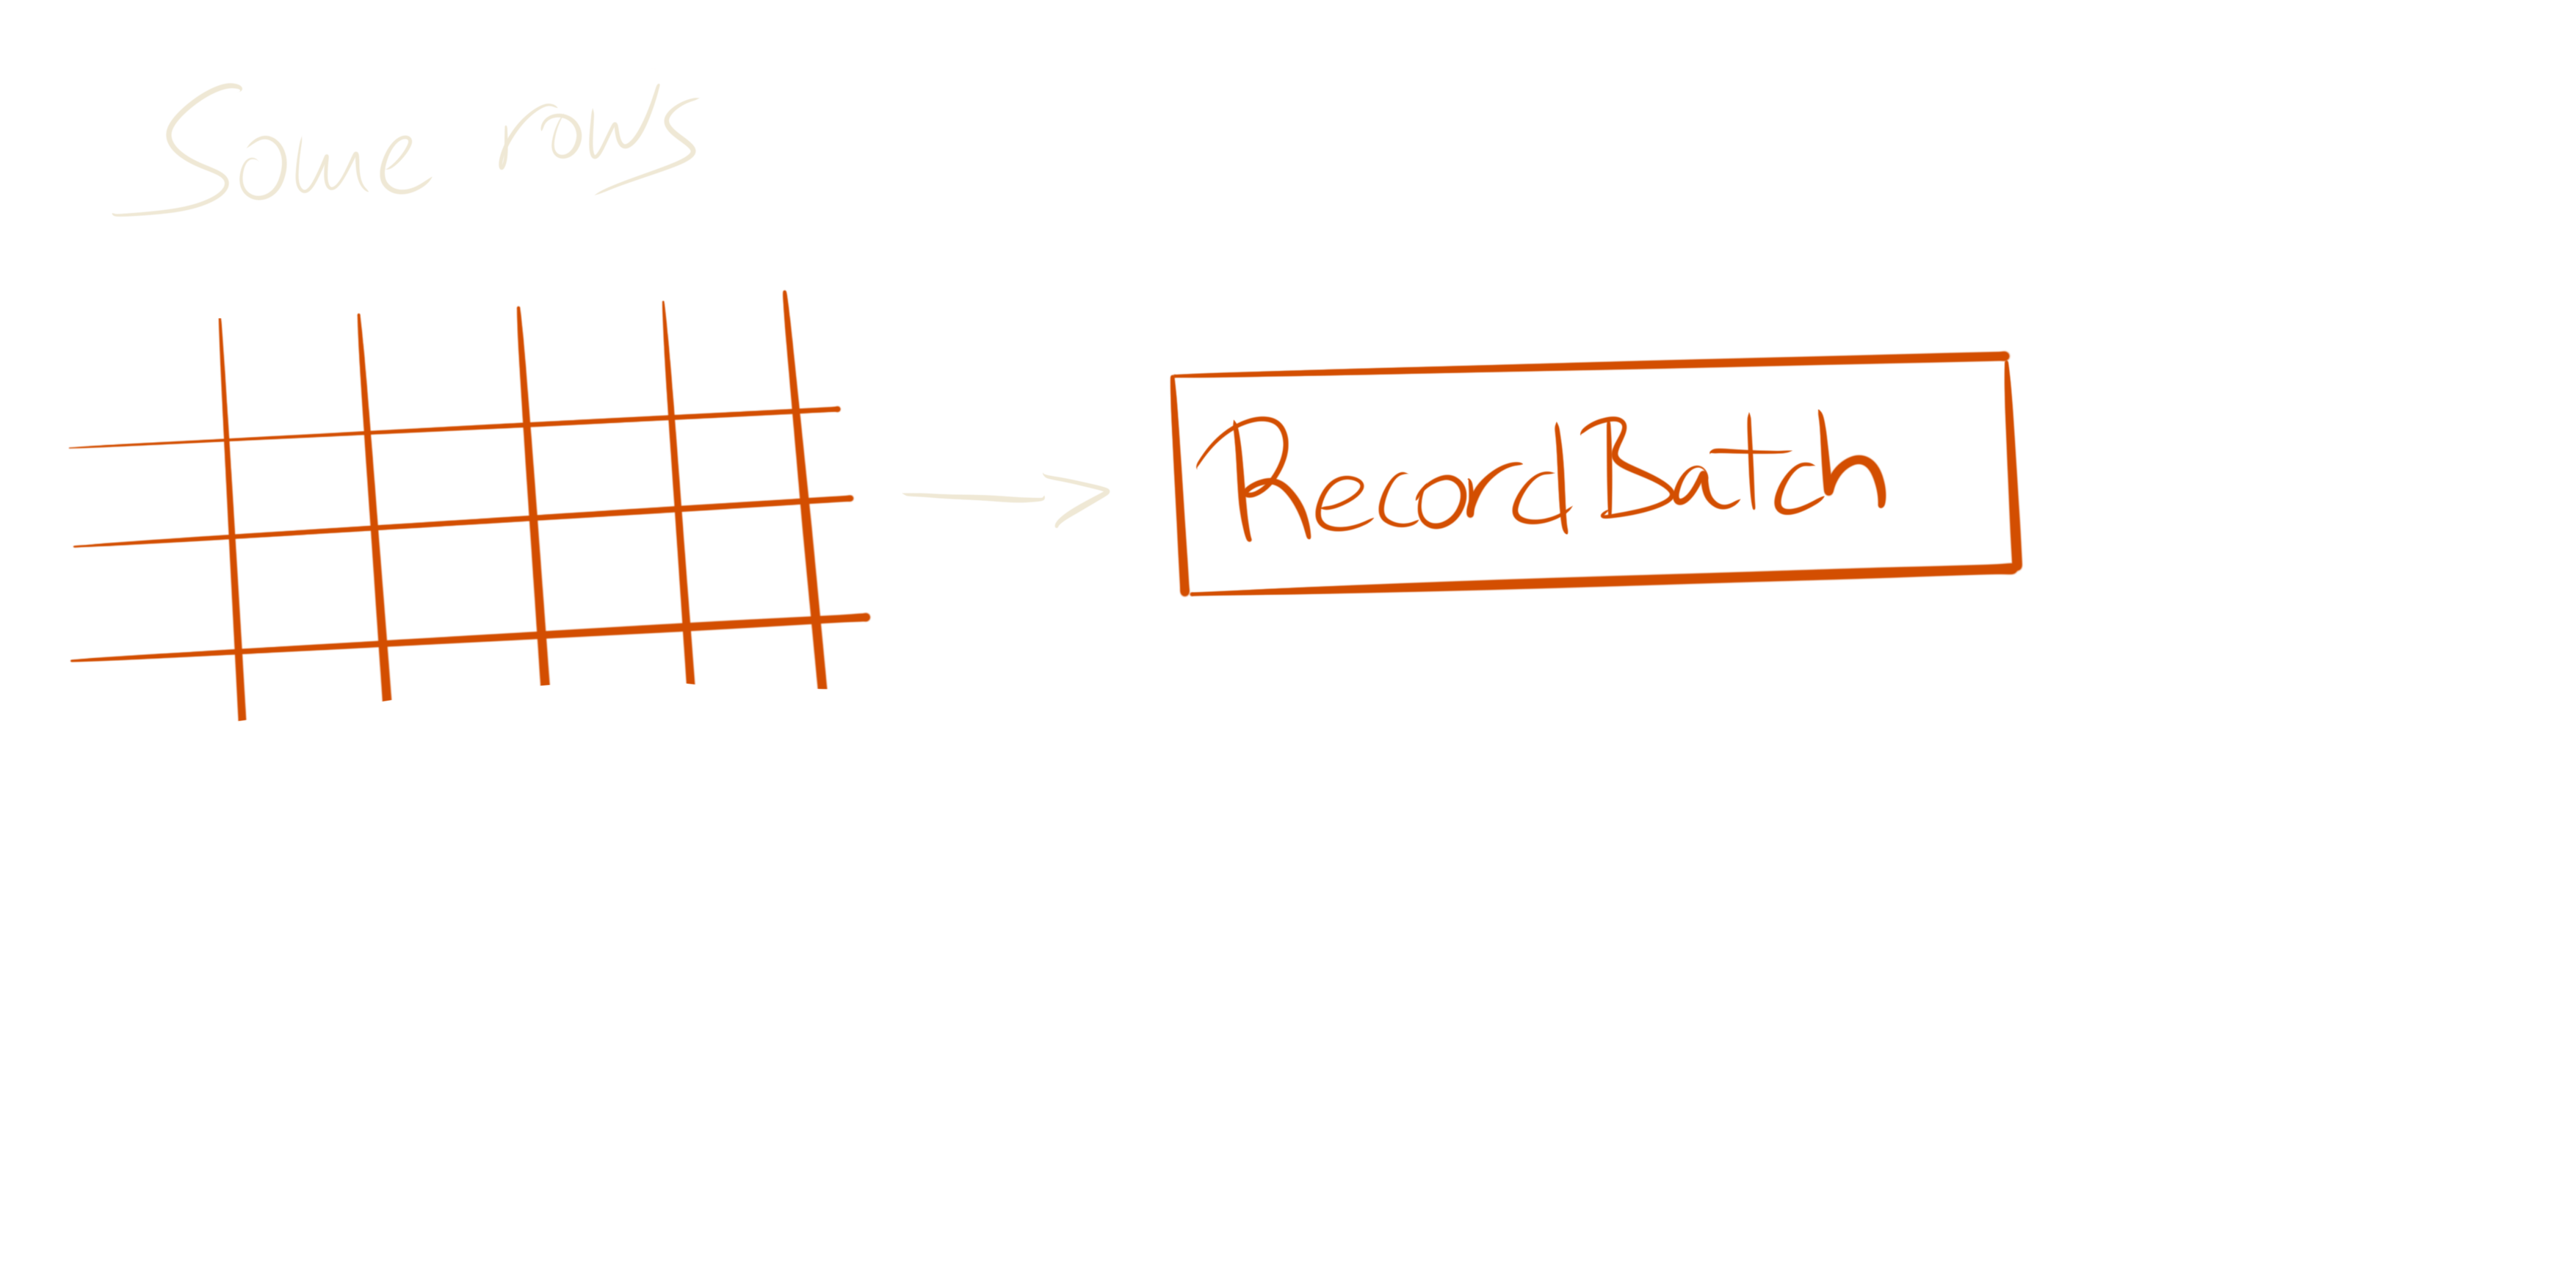 Some rows
RecordBatch